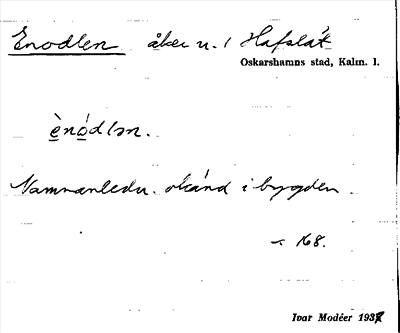 Enodlen åker n. 1 Hafslät
Oskarshamns stad, Kalm. l.
ènódlən.
Namnanledn. okänd i bygden.
168.
Ivar Modéer 1937